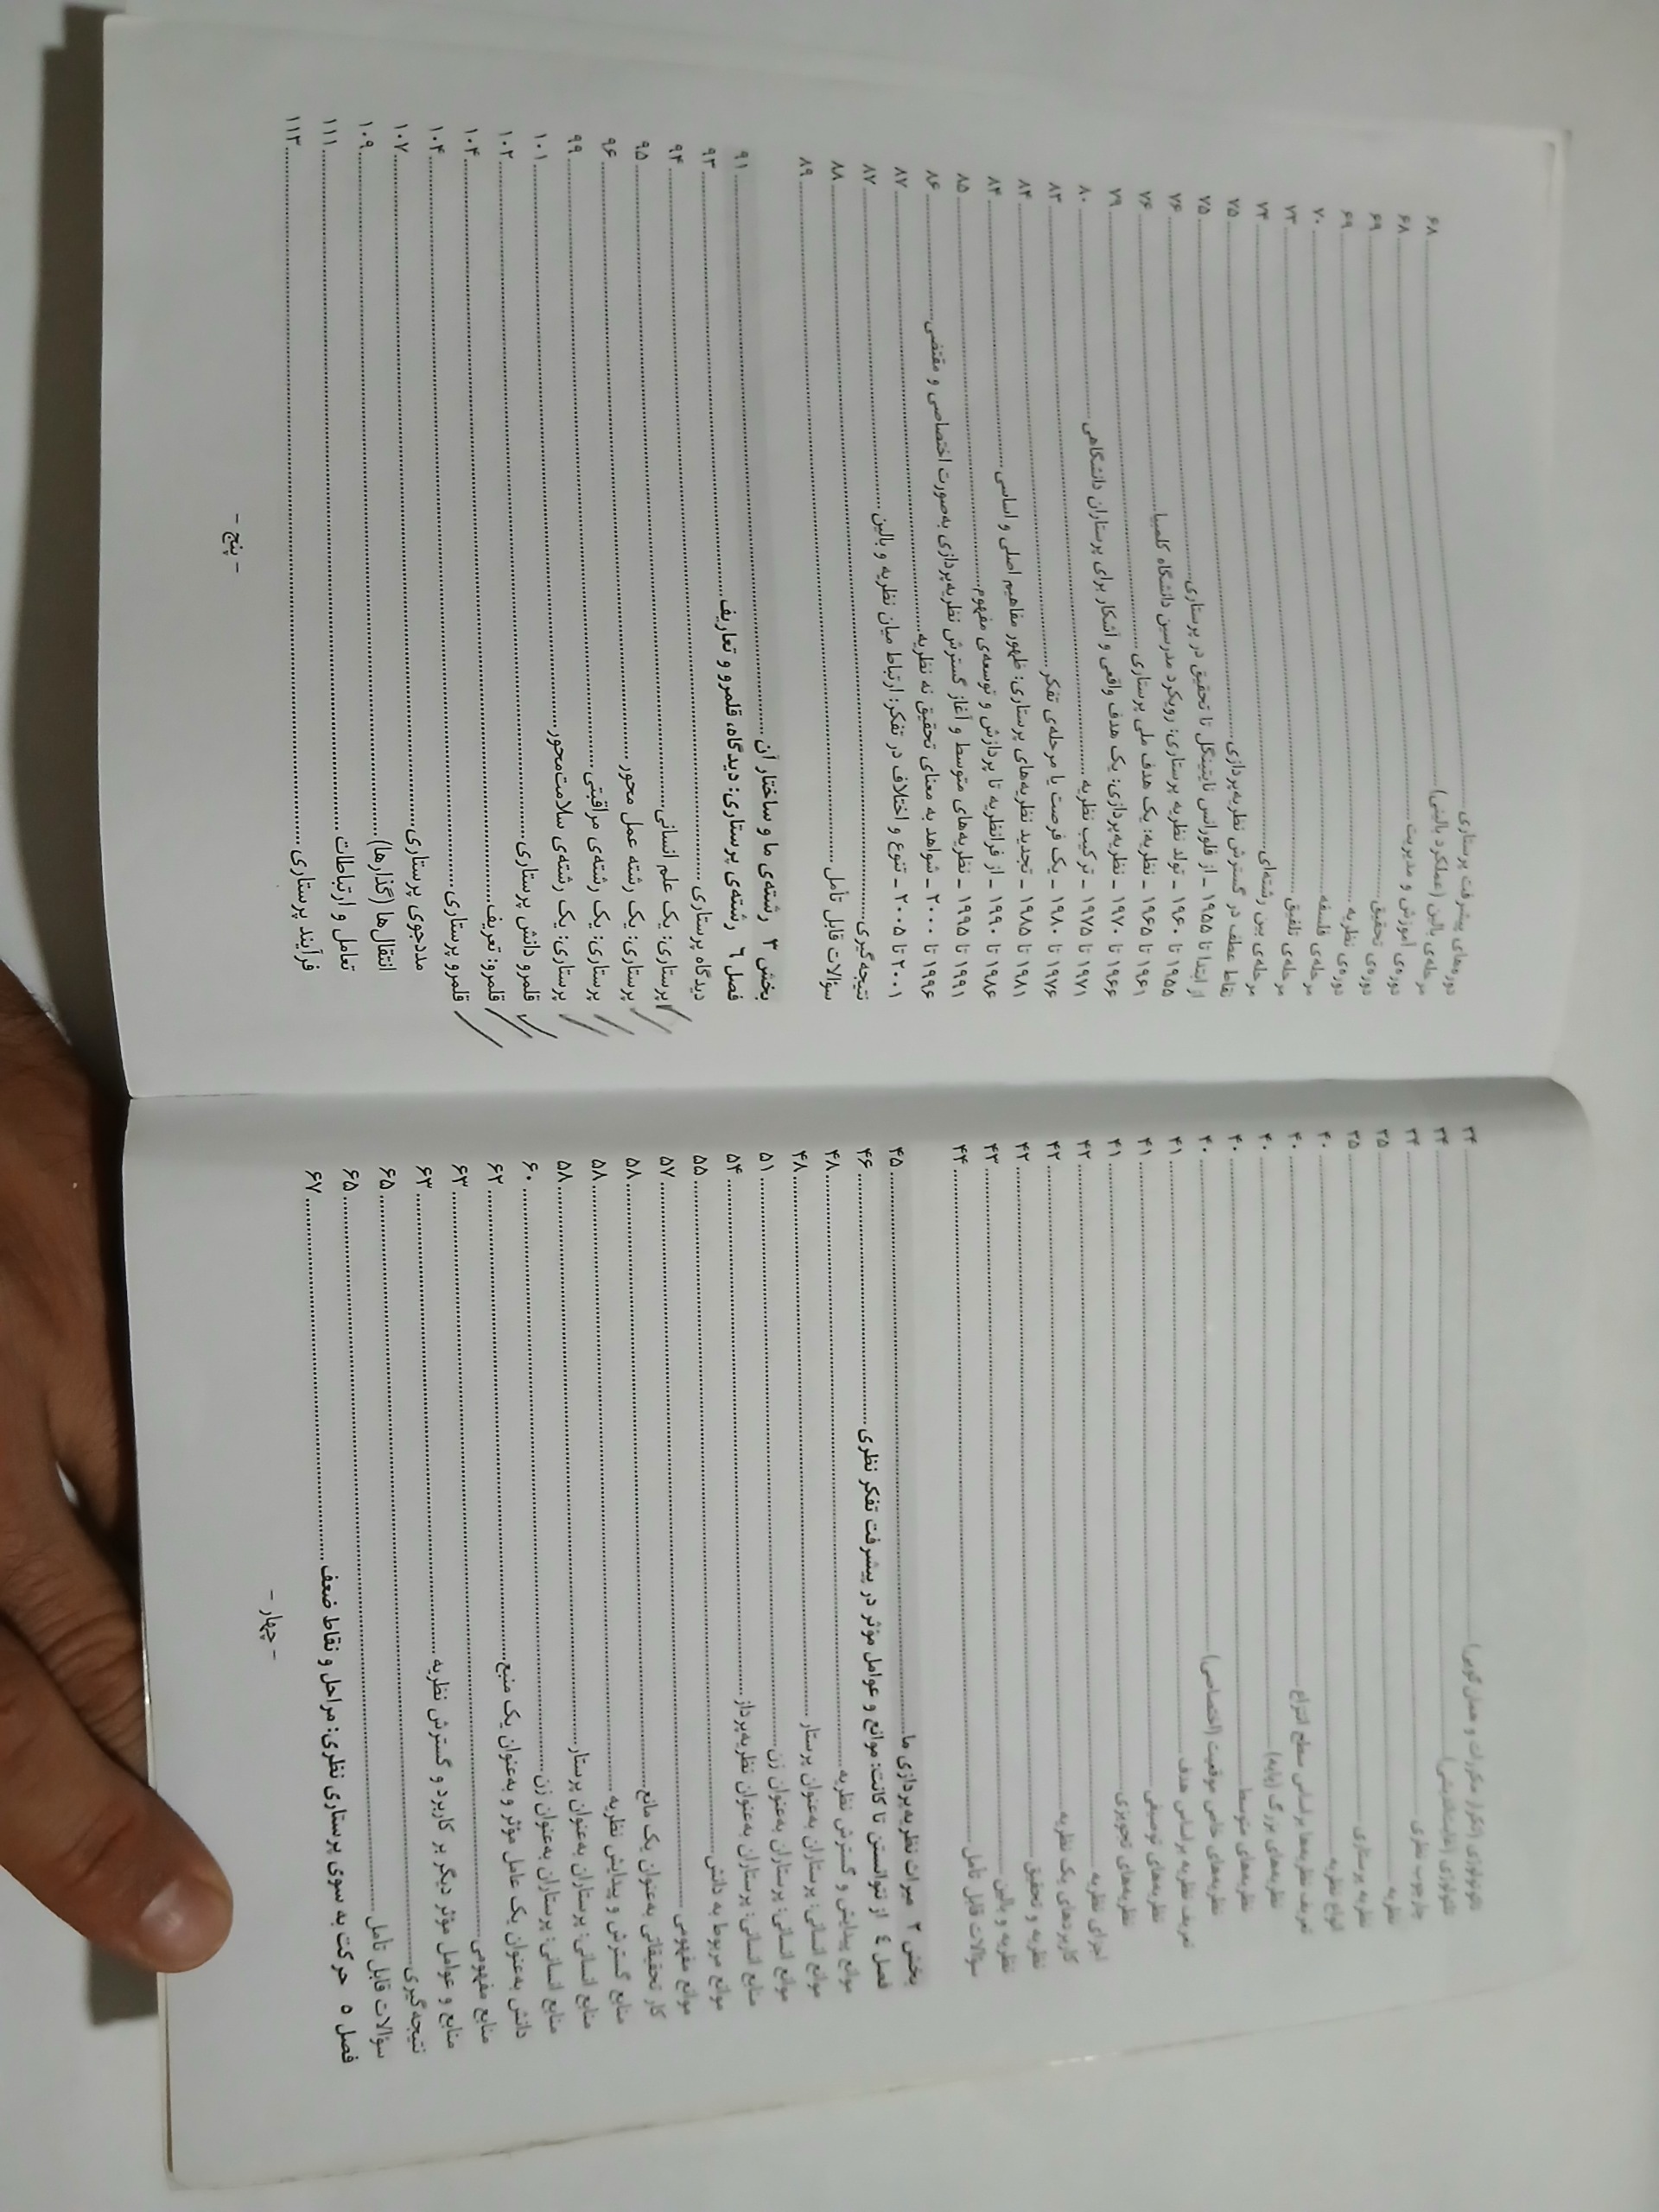 تئولوژی (تکرار مکررات و همان‌گویی) ۳۴
تئولوژی (غایت‌اندیشی) ۳۴
چارچوب نظری ۳۴
نظریه ۳۵
نظریه پرستاری ۳۵
انواع نظریه ۴۰
تعریف نظریه‌ها براساس سطح انتزاع ۴۰
نظریه‌های بزرگ (پایه) ۴۰
نظریه‌های متوسط ۴۰
نظریه‌های خاص موقعیت (اختصاصی) ۴۰
تعریف نظریه براساس هدف ۴۱
نظریه‌های توصیفی ۴۱
نظریه‌های تجویزی ۴۱
اجزای نظریه ۴۲
کاربردهای یک نظریه ۴۲
نظریه و تحقیق ۴۲
نظریه و بالین ۴۳
سؤالات قابل تأمل ۴۴
بخش ۲ میراث نظریه‌پردازی ما ۴۵
فصل ۴ از نتوانستن تا کانت: موانع و عوامل مؤثر در پیشرفت تفکر نظری ۴۶
موانع پیدایش و گسترش نظریه ۴۸
موانع انسانی: پرستاران به‌عنوان پرستار ۴۸
موانع انسانی: پرستاران به‌عنوان زن ۵۱
منابع انسانی: پرستاران به‌عنوان نظریه‌پرداز ۵۴
موانع مربوط به دانش ۵۵
موانع مفهومی ۵۷
کار تحقیقاتی به‌عنوان یک مانع ۵۸
منابع گسترش و پیدایش نظریه ۵۸
منابع انسانی: پرستاران به‌عنوان پرستار ۵۸
منابع انسانی: پرستاران به‌عنوان زن ۶۰
دانش به‌عنوان یک عامل مؤثر و به‌عنوان یک منبع ۶۲
منابع مفهومی ۶۳
منابع و عوامل مؤثر دیگر بر کاربرد و گسترش نظریه ۶۳
نتیجه‌گیری ۶۵
سؤالات قابل تأمل ۶۵
فصل ۵ حرکت به سوی پرستاری نظری: مراحل و نقاط ضعف ۶۷
- چهار -
دوره‌های پیشرفت پرستاری ۶۸
مرحله‌ی بالین (عملکرد بالینی) ۶۸
دوره‌ی آموزش و مدیریت ۶۹
دوره‌ی تحقیق ۶۹
دوره‌ی نظریه ۷۰
مرحله‌ی فلسفه ۷۳
مرحله‌ی تلفیق ۷۴
مرحله‌ی بین رشته‌ای ۷۵
نقاط عطف در گسترش نظریه‌پردازی ۷۵
از ابتدا تا ۱۹۵۵ ـ از فلورانس نایتینگل تا تحقیق در پرستاری ۷۶
۱۹۵۵ تا ۱۹۶۰ ـ تولد نظریه پرستاری: رویکرد مدرسین دانشگاه کلمبیا ۷۶
۱۹۶۱ تا ۱۹۶۵ ـ نظریه: یک هدف ملی پرستاری ۷۹
۱۹۶۶ تا ۱۹۷۰ ـ نظریه‌پردازی: یک هدف واقعی و آشکار برای پرستاران دانشگاهی ۸۰
۱۹۷۱ تا ۱۹۷۵ ـ ترکیب نظریه ۸۳
۱۹۷۶ تا ۱۹۸۰ ـ یک فرصت یا مرحله‌ی تفکر ۸۴
۱۹۸۱ تا ۱۹۸۵ ـ تجدید نظریه‌های پرستاری: ظهور مفاهیم اصلی و اساسی ۸۴
۱۹۸۶ تا ۱۹۹۰ ـ از فرانظریه تا پردازش و توسعه‌ی مفهوم ۸۵
۱۹۹۱ تا ۱۹۹۵ ـ نظریه‌های متوسط و آغاز گسترش نظریه‌پردازی به‌صورت اختصاصی و مقتضی ۸۶
۱۹۹۶ تا ۲۰۰۰ ـ شواهد به معنای تحقیق نه نظریه ۸۷
۲۰۰۱ تا ۲۰۰۵ ـ تنوع و اختلاف در تفکر: ارتباط میان نظریه و بالین ۸۷
نتیجه‌گیری ۸۸
سؤالات قابل تأمل ۸۹
بخش ۳ رشته‌ی ما و ساختار آن ۹۱
فصل ۶ رشته‌ی پرستاری: دیدگاه، قلمرو و تعاریف ۹۳
دیدگاه پرستاری ۹۴
پرستاری: یک علم انسانی ۹۵
پرستاری: یک رشته عمل محور ۹۶
پرستاری: یک رشته‌ی مراقبتی ۹۹
پرستاری: یک رشته‌ی سلامت‌محور ۱۰۱
قلمرو دانش پرستاری ۱۰۲
قلمرو: تعریف ۱۰۴
قلمرو پرستاری ۱۰۴
مددجوی پرستاری ۱۰۷
انتقال‌ها (گذارها) ۱۰۹
تعامل و ارتباطات ۱۱۱
فرآیند پرستاری ۱۱۳
- پنج -